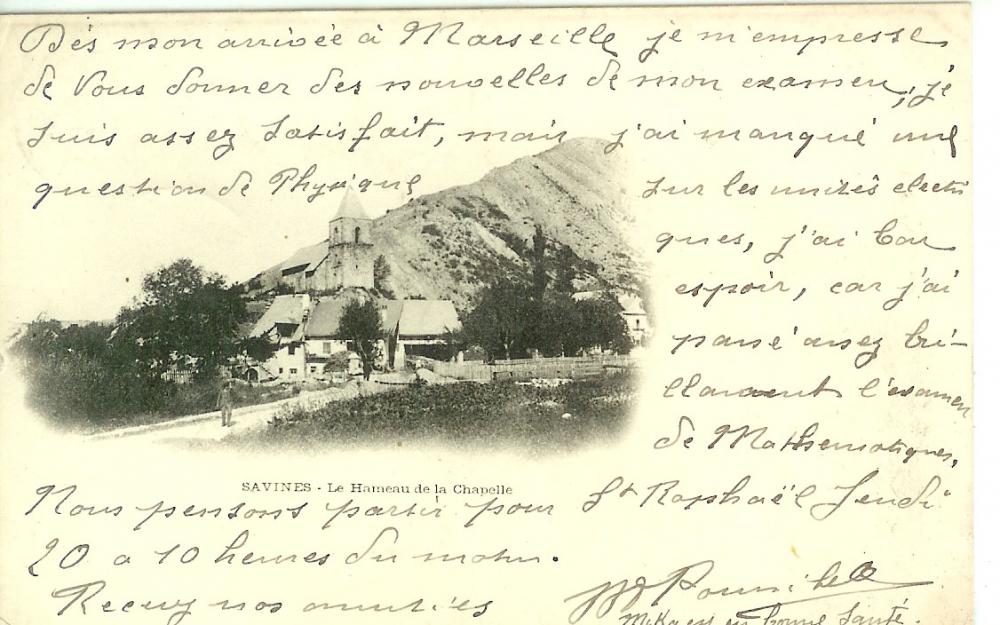 Dés mon arrivée à Marseille je m'empresse
de Vous donner des nouvelles de mon examen, je
suis assez satisfait, mais j'ai manqué une
question de Physique sur les unités electri
ques, j'ai bon
espoir, car j'ai
passé assez bri-
llament l'examen
de Mathematiques,
SAVINES - Le Hameau de la Chapelle
Nous pensons partir pour St Raphaël Jeudi
20 a 10 heures du matin.
Recevez nos amitiés
en bonne Santé.